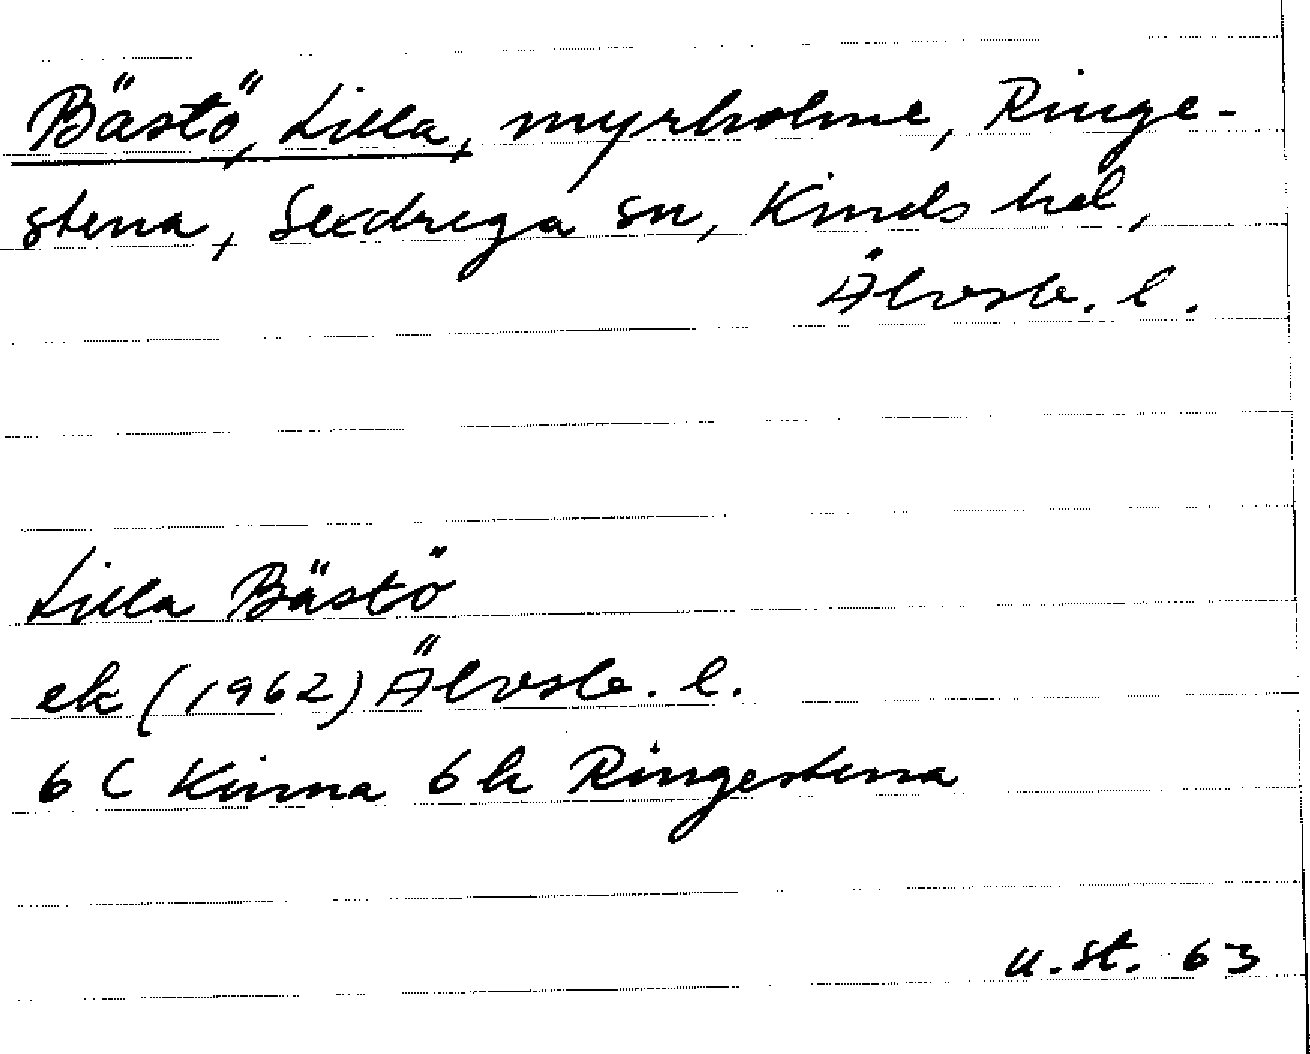 Bästö, Lilla, myrholme, Ringe-
stena, Sexdrega sn, Kinds hd,
Älvsb. l.
Lilla Bästö
ek (1962) Älvsb. l.
6 C Kinna 6 h Ringestena
u.st. 63